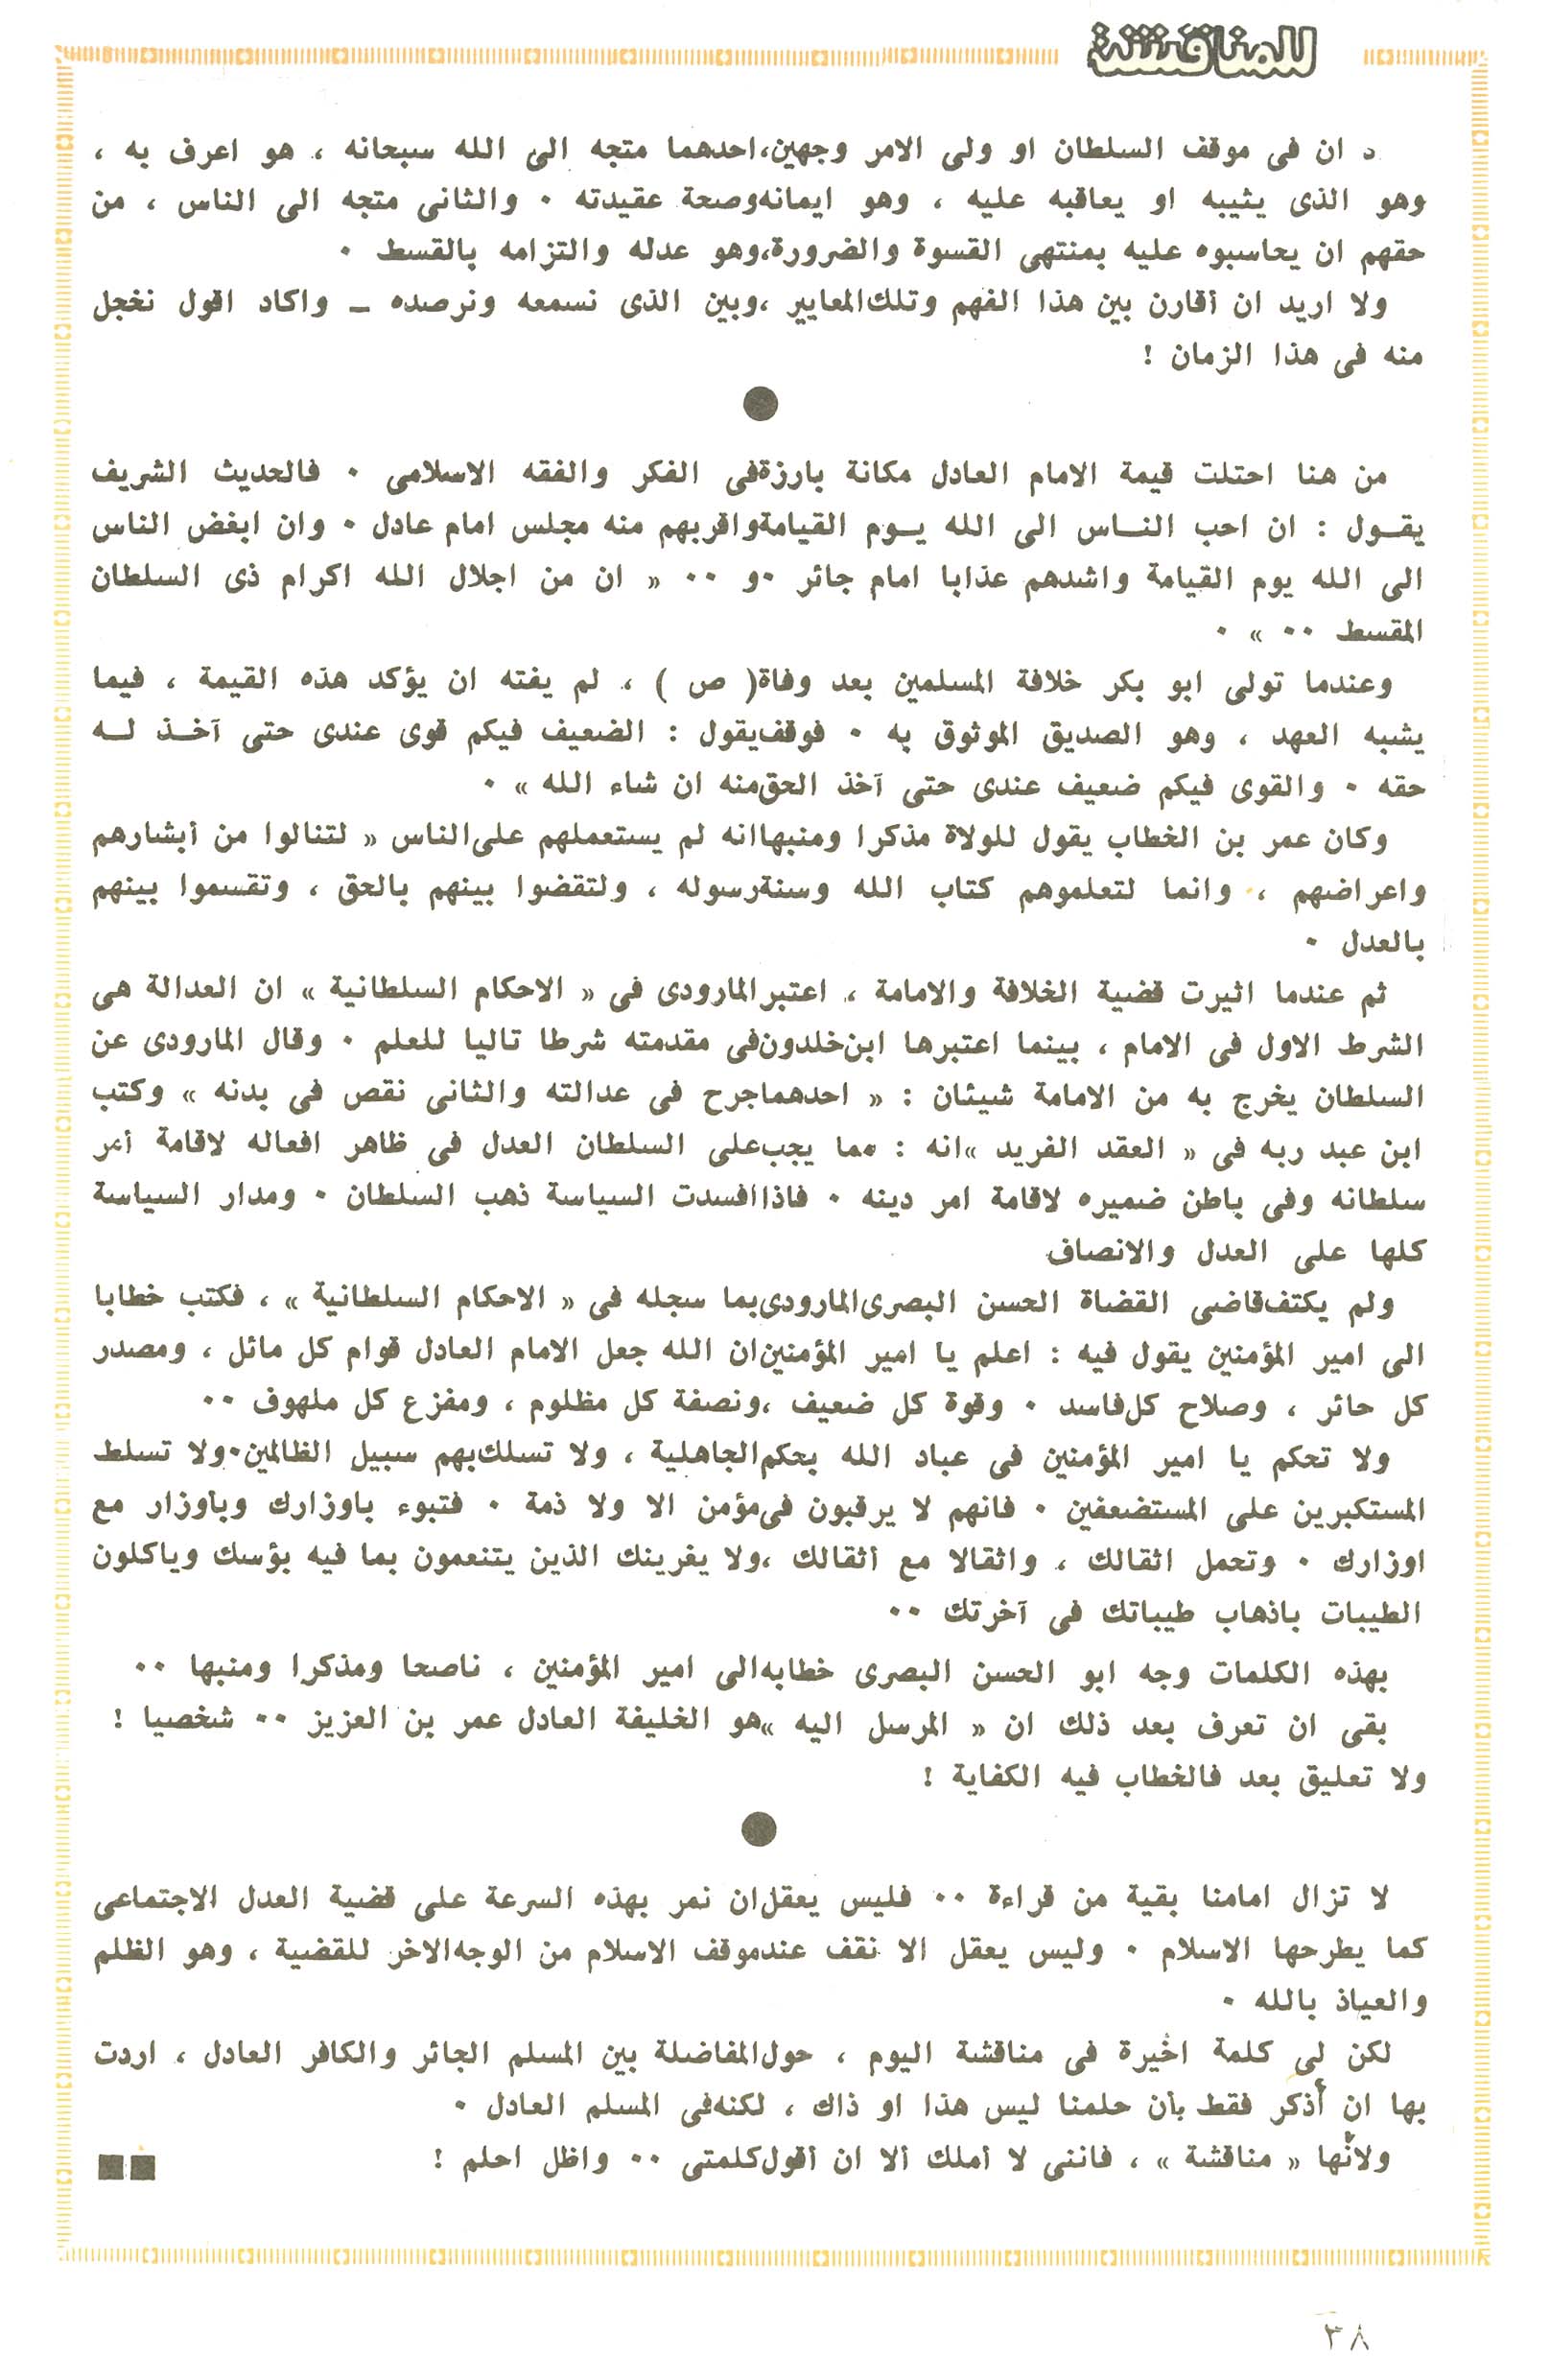 للمناقشة
ان فى موقف السلطان او ولى الامر وجهين،احدهما متجه الى الله سبحانه ، هو اعرف به ،
وهو الذى يثيبه او يعاقبه عليه ، وهو ايمانه وصحة عقيدته ٠ والثانى متجه الى الناس ، من
حقهم ان يحاسبوه عليه بمنتهى القسوة والضرورة،وهو عدله والتزامه بالقسط ٠
ولا اريد ان أقارن بين هذا الفهم وتلك المعايير ،وبين الذى نسمعه ونرصده ـ واكاد اقول نخجل
منه فى هذا الزمان !
من هنا احتلت قيمة الامام العادل مكانة بارزة فى الفكر والفقه الاسلامى ٠ فالحديث الشريف
يقـول : ان احب النـاس الى الله يـوم القيامة واقربهم منه مجلس امام عادل ٠ وان ابغض الناس
الى الله يوم القيامة واشدهم عذابا امام جائر ٠و ٠٠ « ان من اجلال الله اكرام ذى السلطان
المقسط ٠٠ » ٠
وعندما تولى ابو بكر خلافة المسلمين بعد وفاة ( ص ) ، لم يفته ان يؤكد هذه القيمة ، فيما
يشبه العهد ، وهو الصديق الموثوق به ٠ فوقف يقول : الضعيف فيكم قوى عندى حتى آخـذ لـه
حقه ٠ والقوى فيكم ضعيف عندى حتى آخذ الحق منه ان شاء الله » ٠
وكان عمر بن الخطاب يقول للولاة مذكرا ومنبها انه لم يستعملهم على الناس « لتنالوا من أبشارهم
واعراضهم ، وانما لتعلموهم كتاب الله وسنة رسوله ، ولتقضوا بينهم بالحق ، وتقسموا بينهم
بالعدل ٠
ثم عندما اثيرت قضية الخلافة والامامة ، اعتبر المارودى فى « الاحكام السلطانية » ان العدالة هى
الشرط الاول فى الامام ، بينما اعتبرها ابن خلدون فى مقدمته شرطا تاليا للعلم ٠ وقال المارودى عن
السلطان يخرج به من الامامة شيئان : « احدهما جرح فى عدالته والثانى نقص فى بدنه » وكتب
ابن عبد ربه فى « العقد الفريد » انه : مما يجب على السلطان العدل فى ظاهر افعاله لاقامة أمر
سلطانه وفى باطن ضميره لاقامة امر دينه ٠ فاذا افسدت السياسة ذهب السلطان ٠ ومدار السياسة
كلها على العدل والانصاف
ولم يكتف قاضى القضاة الحسن البصرى المارودى بما سجله فى « الاحكام السلطانية » ، فكتب خطابا
الى امير المؤمنين يقول فيه : اعلم يا امير المؤمنين ان الله جعل الامام العادل قوام كل مائل ، ومصدر
كل حائر ، وصلاح كل فاسد ٠ وقوة كل ضعيف ،ونصفة كل مظلوم ، ومفزع كل ملهوف ٠٠
ولا تحكم يا امير المؤمنين فى عباد الله بحكم الجاهلية ، ولا تسلك بهم سبيل الظالمين٠ولا تسلط
المستكبرين على المستضعفين ٠ فانهم لا يرقبون فى مؤمن الا ولا ذمة ٠ فتبوء باوزارك وبأوزار مع
اوزارك ٠ وتحمل اثقالك ، واثقالا مع أثقالك ،ولا يغرينك الذين يتنعمون بما فيه بؤسك وياكلون
الطيبات باذهاب طيباتك فى آخرتك ٠٠
بهذه الكلمات وجه ابو الحسن البصرى خطابه الى امير المؤمنين ، ناصحا ومذكرا ومنبها ٠٠
بقى ان تعرف بعد ذلك ان « المرسل اليه » هو الخليفة العادل عمر بن العزيز ٠٠ شخصيا !
ولا تعليق بعد فالخطاب فيه الكفاية !
لا تزال امامنا بقية من قراءة ٠٠ فليس يعقل ان نمر بهذه السرعة على قضية العدل الاجتماعى
كما يطرحها الاسلام ٠ وليس يعقل الا نقف عند موقف الاسلام من الوجه الاخر للقضية ، وهو الظلم
والعياذ بالله ٠
لكن لى كلمة اخيرة فى مناقشة اليوم ، حول المفاضلة بين المسلم الجائر والكافر العادل ، اردت
بها ان أذكر فقط بأن حلمنا ليس هذا او ذاك ، لكنه فى المسلم العادل ٠
ولأنها « مناقشة » ، فاننى لا أملك ألا ان أقول كلمتى ٠٠ واظل احلم !
٣٨